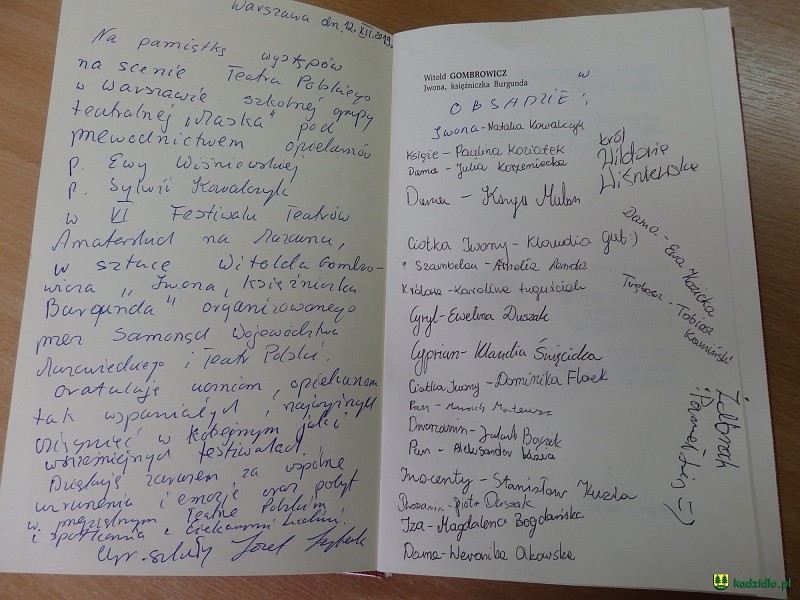 Warszawa dn. 12.XII.2019.
Na pamiątkę występów
na scenie Teatru Polskiego
w Warszawie szkolnej grupy
teatralnej "Maska" pod
przewodnictwem opiekunów
p. Ewy Wiśniewskiej
p. Sylwii Kowalczyk
w VI Festiwalu Teatrów
Amatorskich na Mazowszu,
w sztuce Witolda Gombro-
wicza "Iwona, księżniczka
Burgunda" organizowanego
przez Samorząd Województwa
Mazowieckiego i Teatr Polski.
Gratuluję uczniom, opiekunom
tak wspaniałych, najwyższych
osiągnięć w kolejnym już
festiwalach.
Dziękuję zarazem za wspólne
wzruszenia i emocje oraz pobyt
w Teatrze Polskim
i spotkania z ciekawymi ludźmi.
Dyr. szkoły Józef
Witold GOMBROWICZ
Iwona, księżniczka Burgunda
w
OBSADZIE:
Iwona - Natalia Kowalczyk
król
Wiktoria
Wiśniewska
Książe - Paulina Koziatek
Dama - Julia Korzeniecka
Dama -
Ciotka Iwony - Klaudia Gut :)
Szambelan - Amelia
Królowa - Karolina
Cyryl - Ewelina Duszak
Cyprian - Klaudia Święcicka
Ciotka Iwony - Dominika Florek
Pan - Mateusz
Dworzanin - Jakub Bączek
Pan - Aleksander
Inocenty - Stanisław Kuzia
Piotr Duszak
Iza - Magdalena Bogdańska
Dama - Weronika Olkowska
Dama - Ewa Kozicka
Tobiasz
Kamiński
Żebrak
kadzidlo.pl